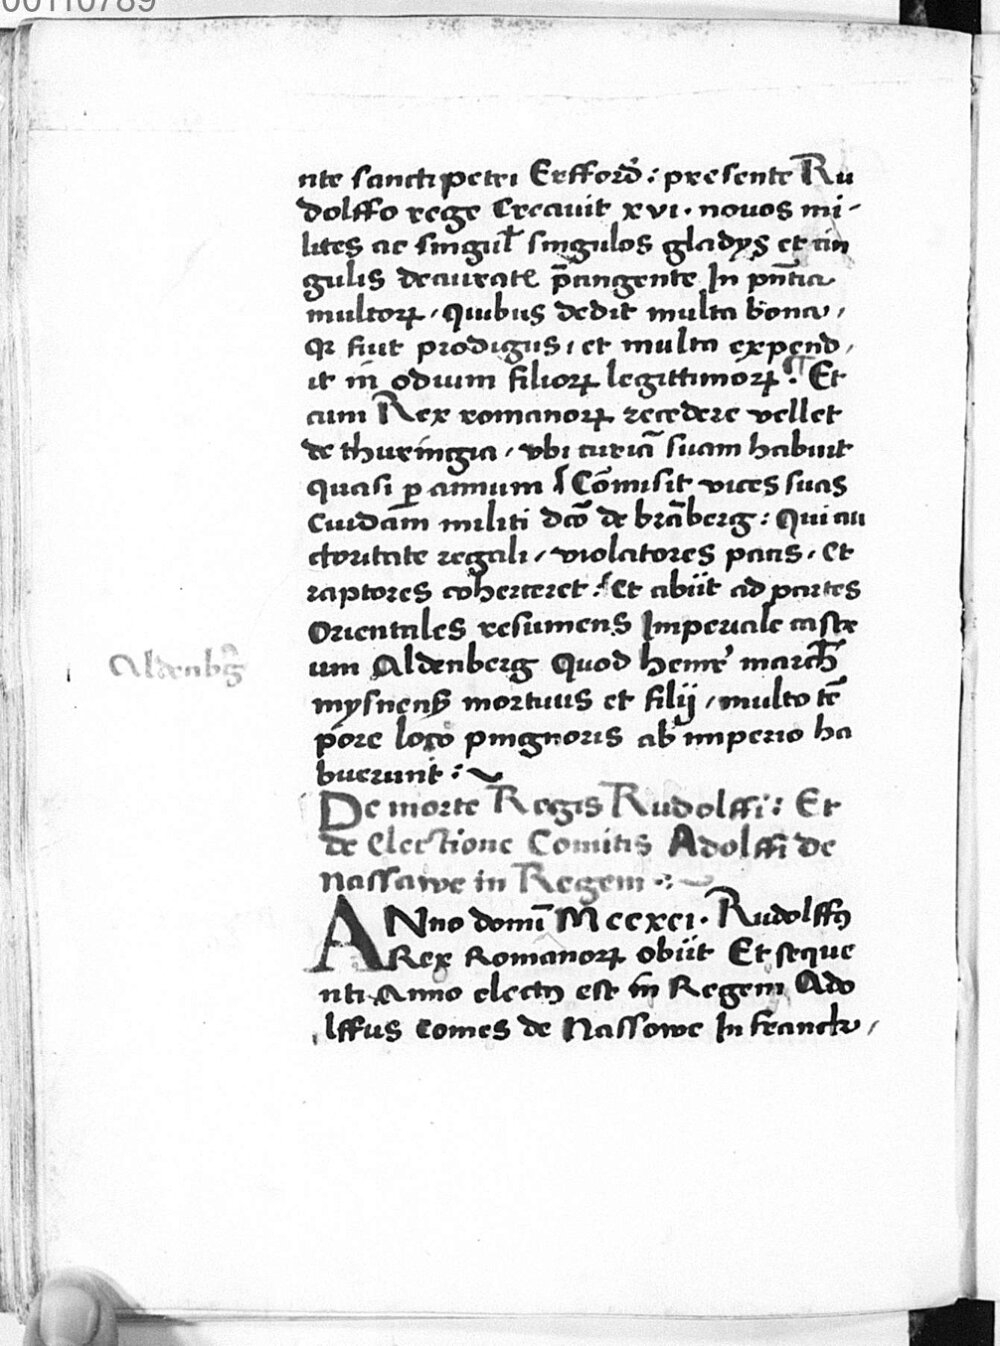 00110789
nte sancti petri Erfford̕ : presente Ru
dolffo rege Creauit xvi · nouos mi-
lites ac singul̕ singulos gladys et cin
gulis deaurat̕ p̄cingente In pn̄tia
multoꝝ / Quibus dedit multa bona /
Qꝛ fuit prodigus / et multa expend /
it in odium filioꝝ legittimoꝝ : Et
cum Rex romanoꝝ recedere vellet
de thuringia / vbi curiā suam habuit
quasi ꝑ annum / Cōmisit vices suas
Cuidam militi dc̄o de brāberg : Qui au
ctoritate regali / violatores pacis / Et
raptores coherceret : Et abiit ad partes
Orientales resumens Imperiale castr
Aldenbḡ
um Aldenberg Quod henrͥ march̄
mysnenß mortuus et filij / multo tē
pore loco pingnoris ab imperio ha
buerunt :~
De morte Regis Rudolffi : Et
de Electione Comitis Adolffi de
Nassawe in Regem :~
ANno domī Mccxci · Rudolffꝰ
Rex Romanoꝝ obiit Et seque
nti Anno electꝰ est in Regem Ado
lffus Comes de Nassowe In franckͦ /